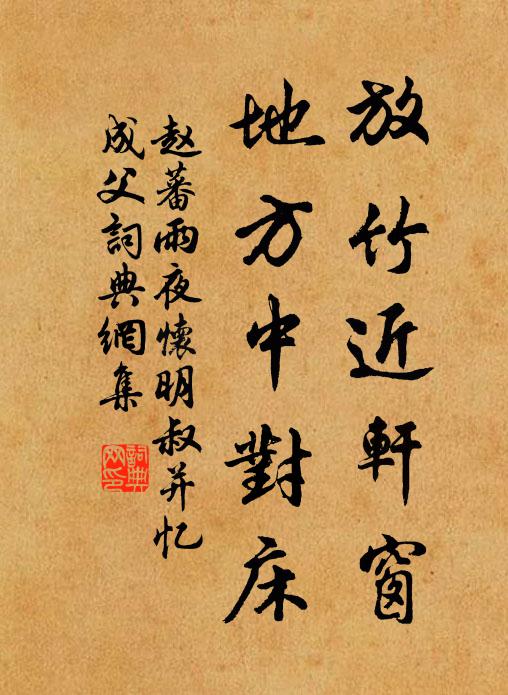 放竹近軒窗
地方中對床
赵蕃雨夜懷明叔并忆
成父詞典網集
詞典網印